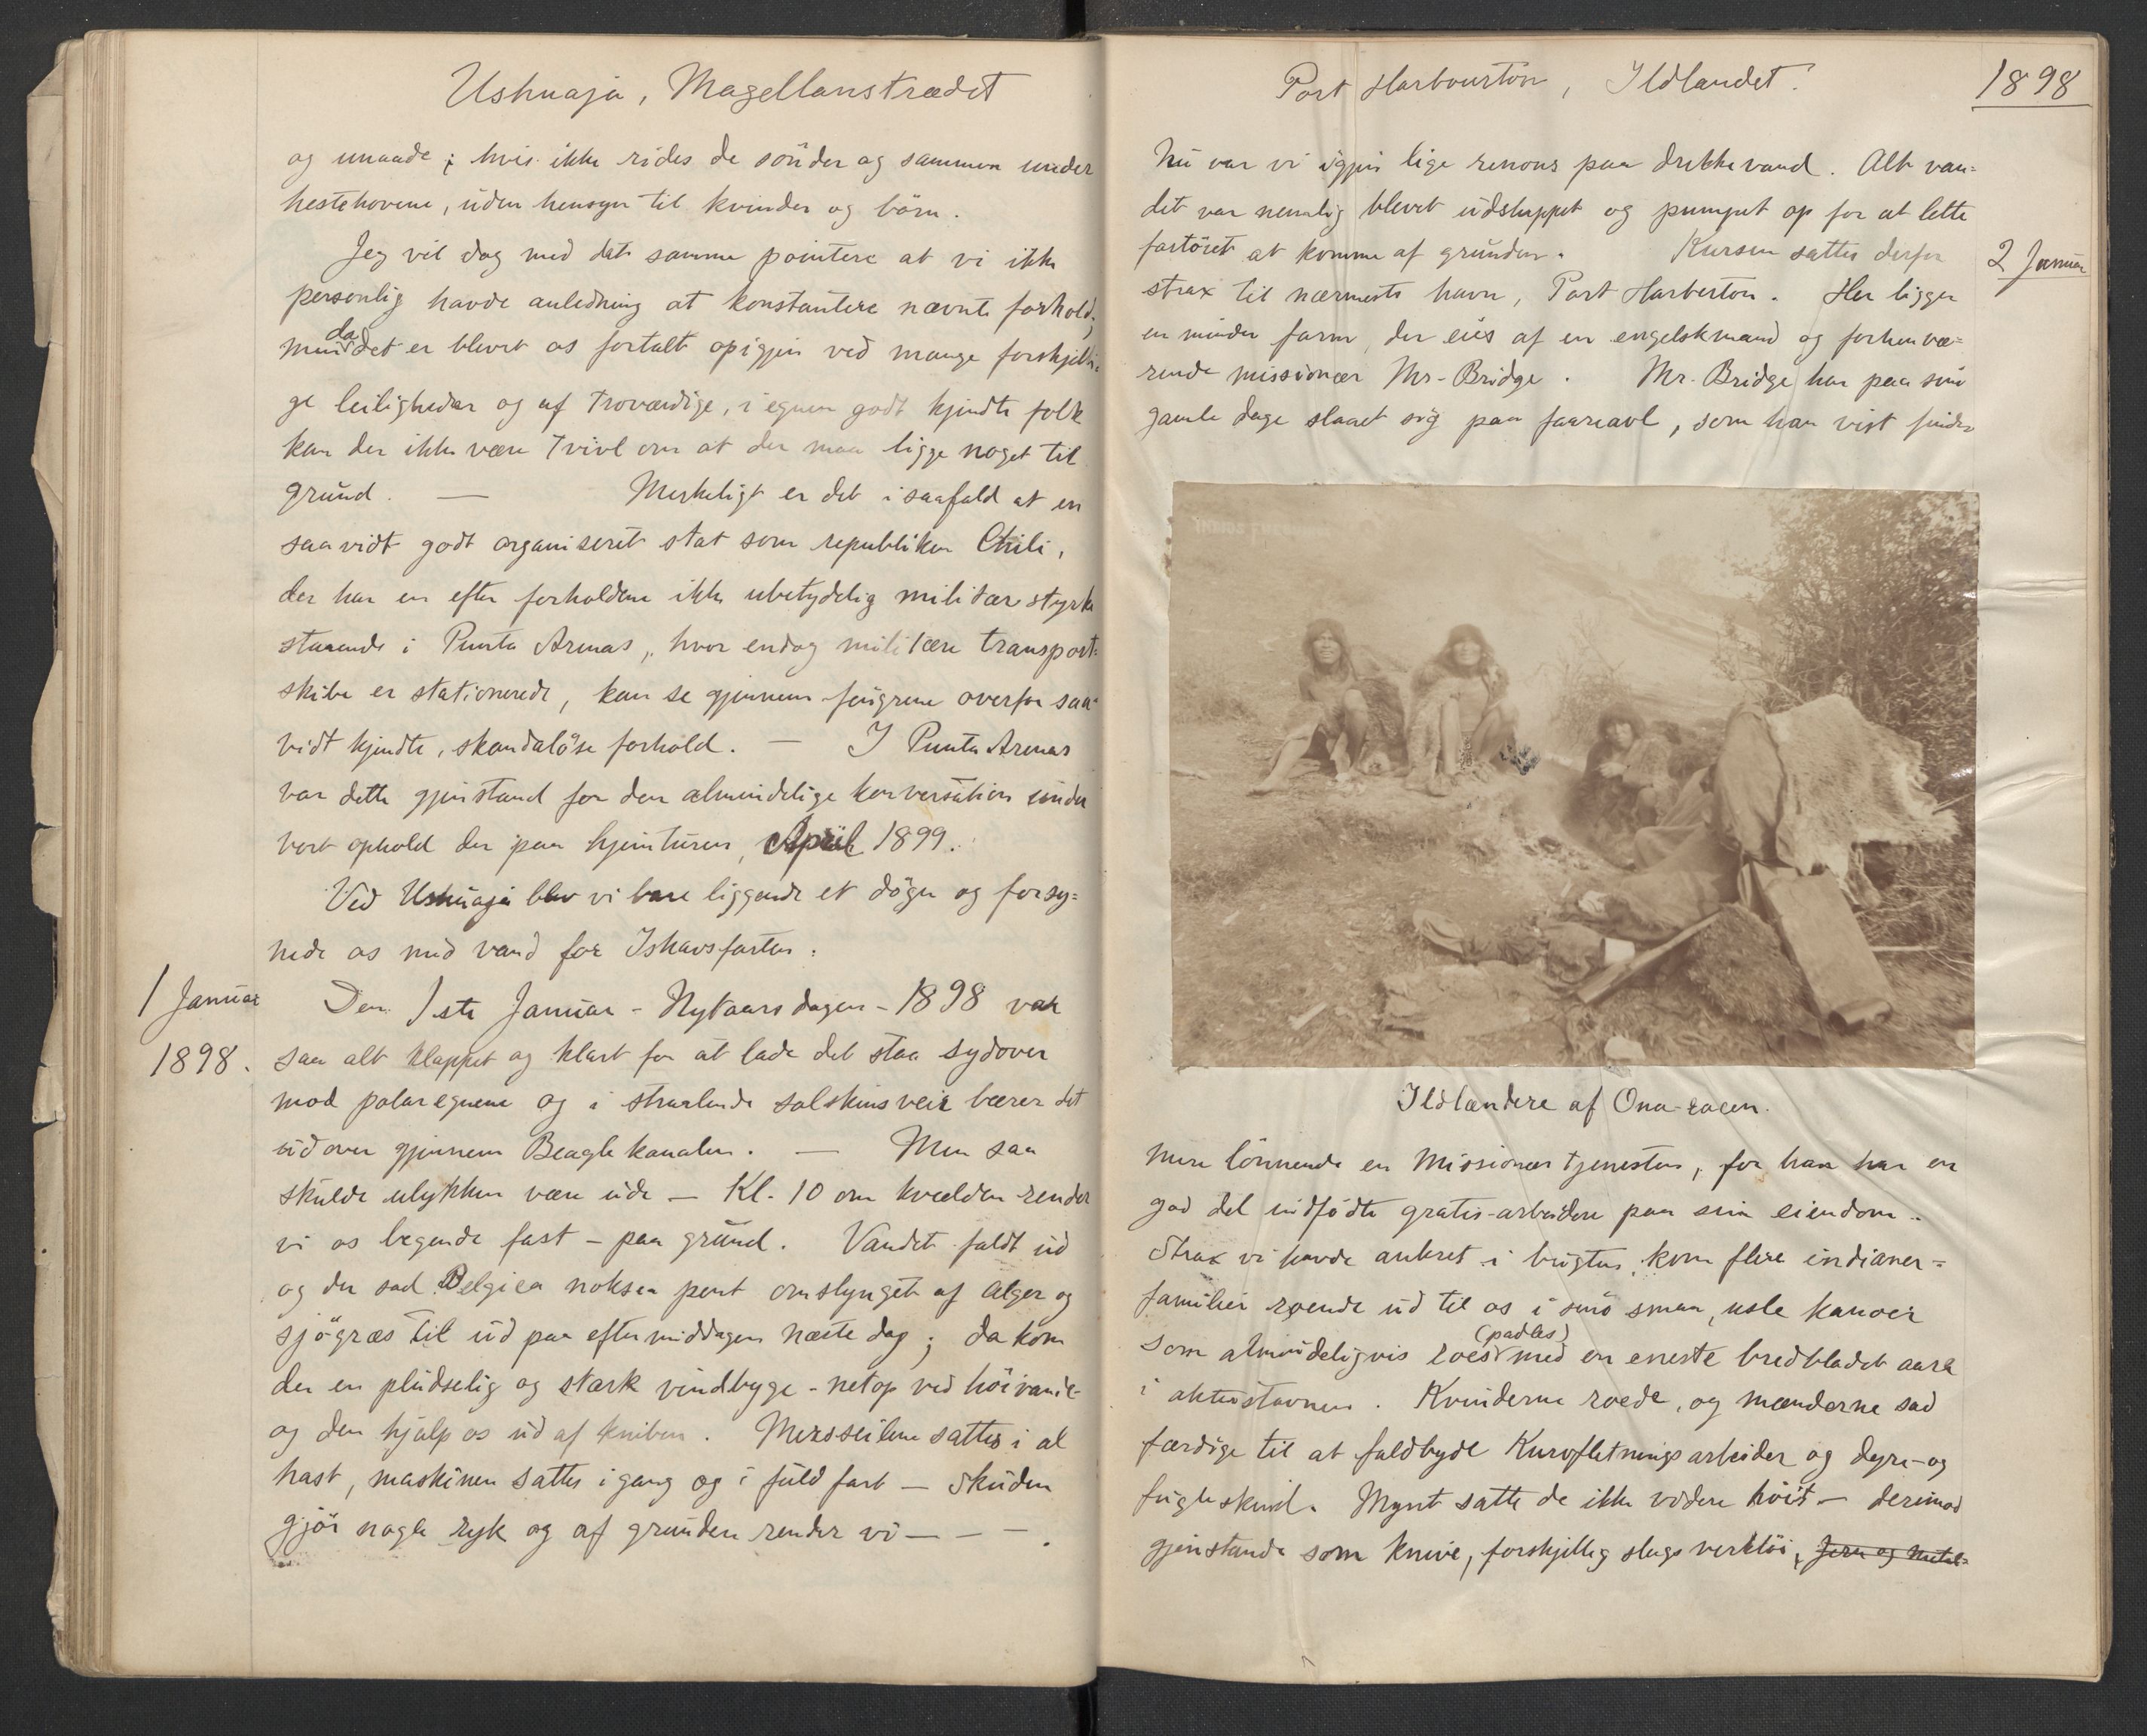 Ushuaja, Magellanstrædet
og unaade; hvis ikke rides de sönder og sammen under
hestehovene, uden hensyn til kvinder og börn.
Jeg vil dog med det samme pointere at vi ikke
personlig havde anledning at konstantere nævnte forhold;
men da det er blevet os fortalt opigjen ved mange forskjelli=
ge leiligheder og af troværdige, i egnen godt kjendte folk
kan der ikke være tvivl om at der maa ligge noget til
grund. — Merkeligt er det i saafald at en
saavidt godt organiseret stat som republiken Chili,
der har en efter forholdene ikke ubetydelig militær styrke
staaende i Punta Arenas, hvor endog militære transport=
skibe er stationerede, kan se gjennem fingrene overfor saa=
vidt kjendte, skandalöse forhold. — I Punta Arenas
var dette gjenstand for den almindelige konversation under
vort ophold der paa hjemturen, April 1899.
Ved Ushuaja blev vi bare liggende et dögn og forsy=
nede os med vand for Ishavsfarten.
1 Januar
1898.
Den 1ste Januar - Nytaarsdagen - 1898 var
saa alt klappet og klart for at lade det staa sydover
mod polaregnene og i straalende solskinsveir bærer det
udover gjennem Beaglekanalen. — Men saa
skulde ulykken være ude — Kl. 10 om kvælden render
vi os begende fast - paa grund. Vandet faldt ud
og der sad Belgica noksaa pent omslynget af alger og
sjögræs til ud paa eftermiddagen næste dag; da kom
der en pludselig og stærk vindbyge - netop ved höivand -
og den hjalp os ud af kniben. Mersseilene sattes i al
hast, maskinen sattes i gang og i fuld fart — skuden
gjör nogle ryk og af grunden render vi — — — .
Port Harbourton, Ildlandet.
1898
Nu var vi igjen lige renons paa drikkevand. Alt van=
det var nemlig blevet udsluppet og pumpet op for at lette
fartöiet at komme af grunden. Kursen sattes derfor
2 Januar
strax til nærmeste havn, Port Harberton. Her ligger
en mindre farm, der eies af en engelskmand og forhenvæ=
rende missionær Mr. Bridge. Mr. Bridge har paa sine
gamle dage slaaet sig paa faareavl, som han vist finder
Ildlændere af Ona-racen.
mere lönnende en Missionær tjenesten, for han har en
god del indfödte gratis-arbeidere paa sin eiendom.
Strax vi havde ankret i bugten, kom flere indianer=
familier roende ud til os i sine smaa, usle kanoer
som almindeligvis roes (padles) med en eneste bredbladet aare
i akterstavnen. Kvinderne roede, og mænderne sad
færdige til at faldbyde Kurvfletningsarbeider og dyre- og
fugleskind. Mynt satte de ikke videre höit — derimod
gjenstande som knive, forskjellig slags verktöi, Jern og Metal=